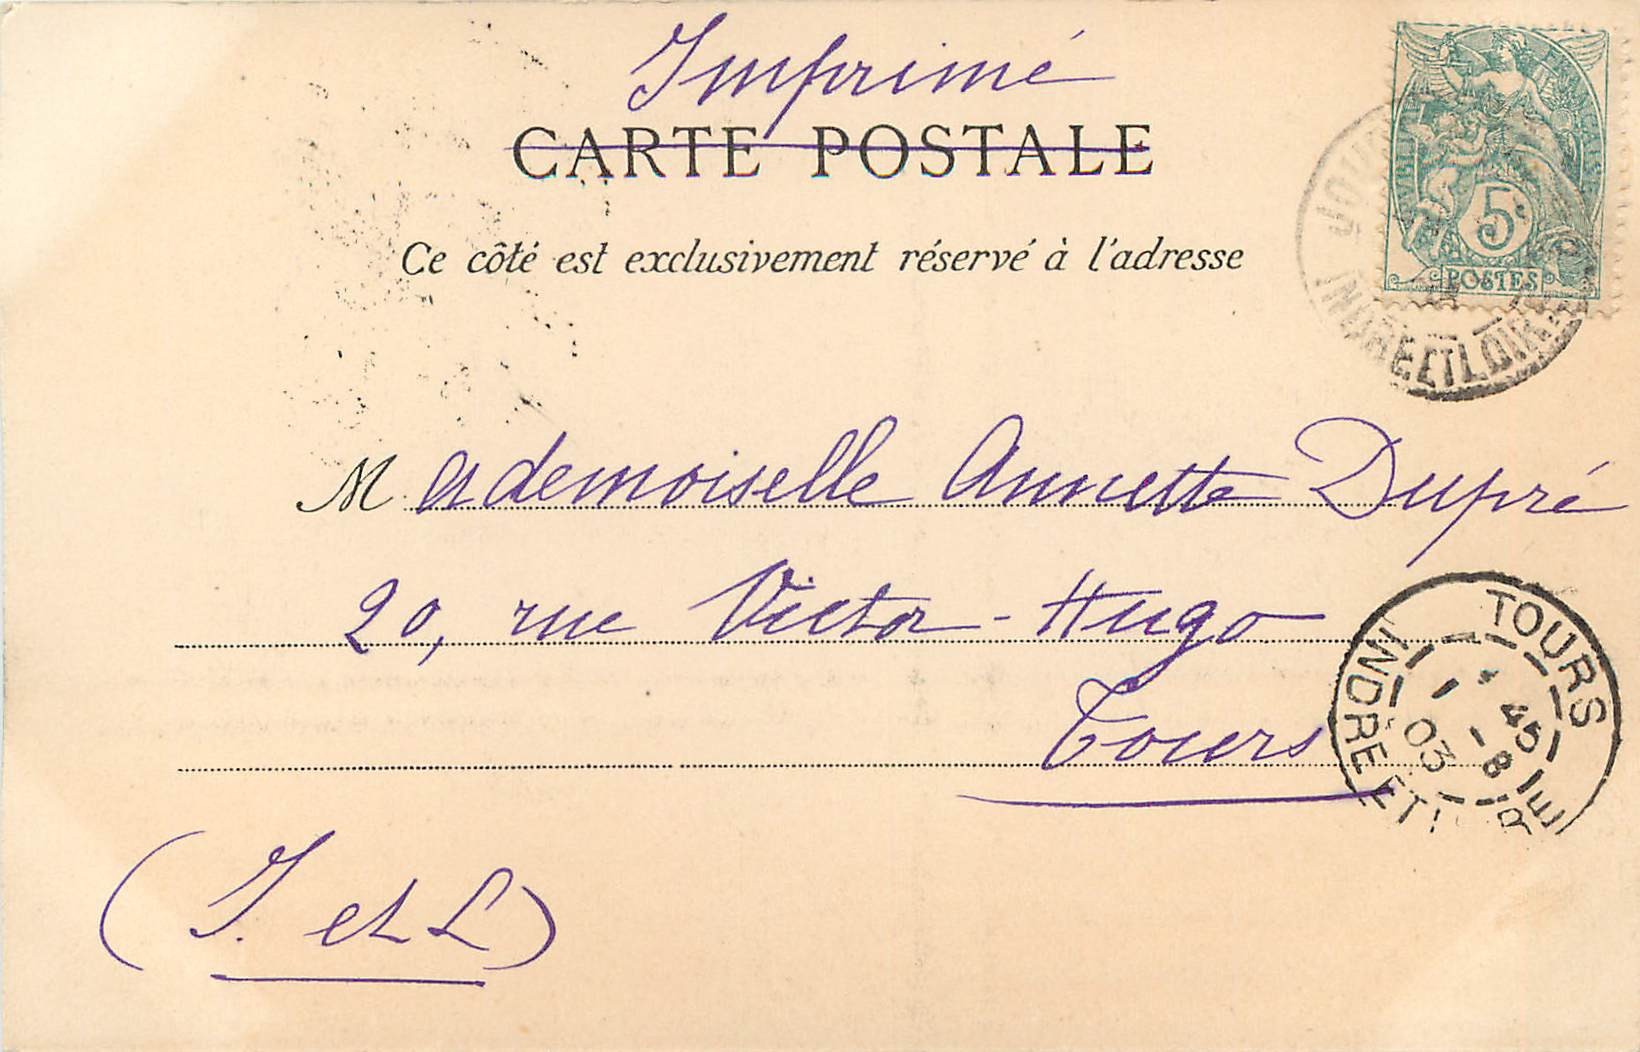 Imprimé
CARTE POSTALE
Ce côté est exclusivement réservé à l'adresse
5c
POSTES
INDRE ET LOIRE
Mademoiselle Annette Dupré
20, rue Victor-Hugo
Tours
TOURS
45
1 - 8
03
INDRE ET
(I. et L)